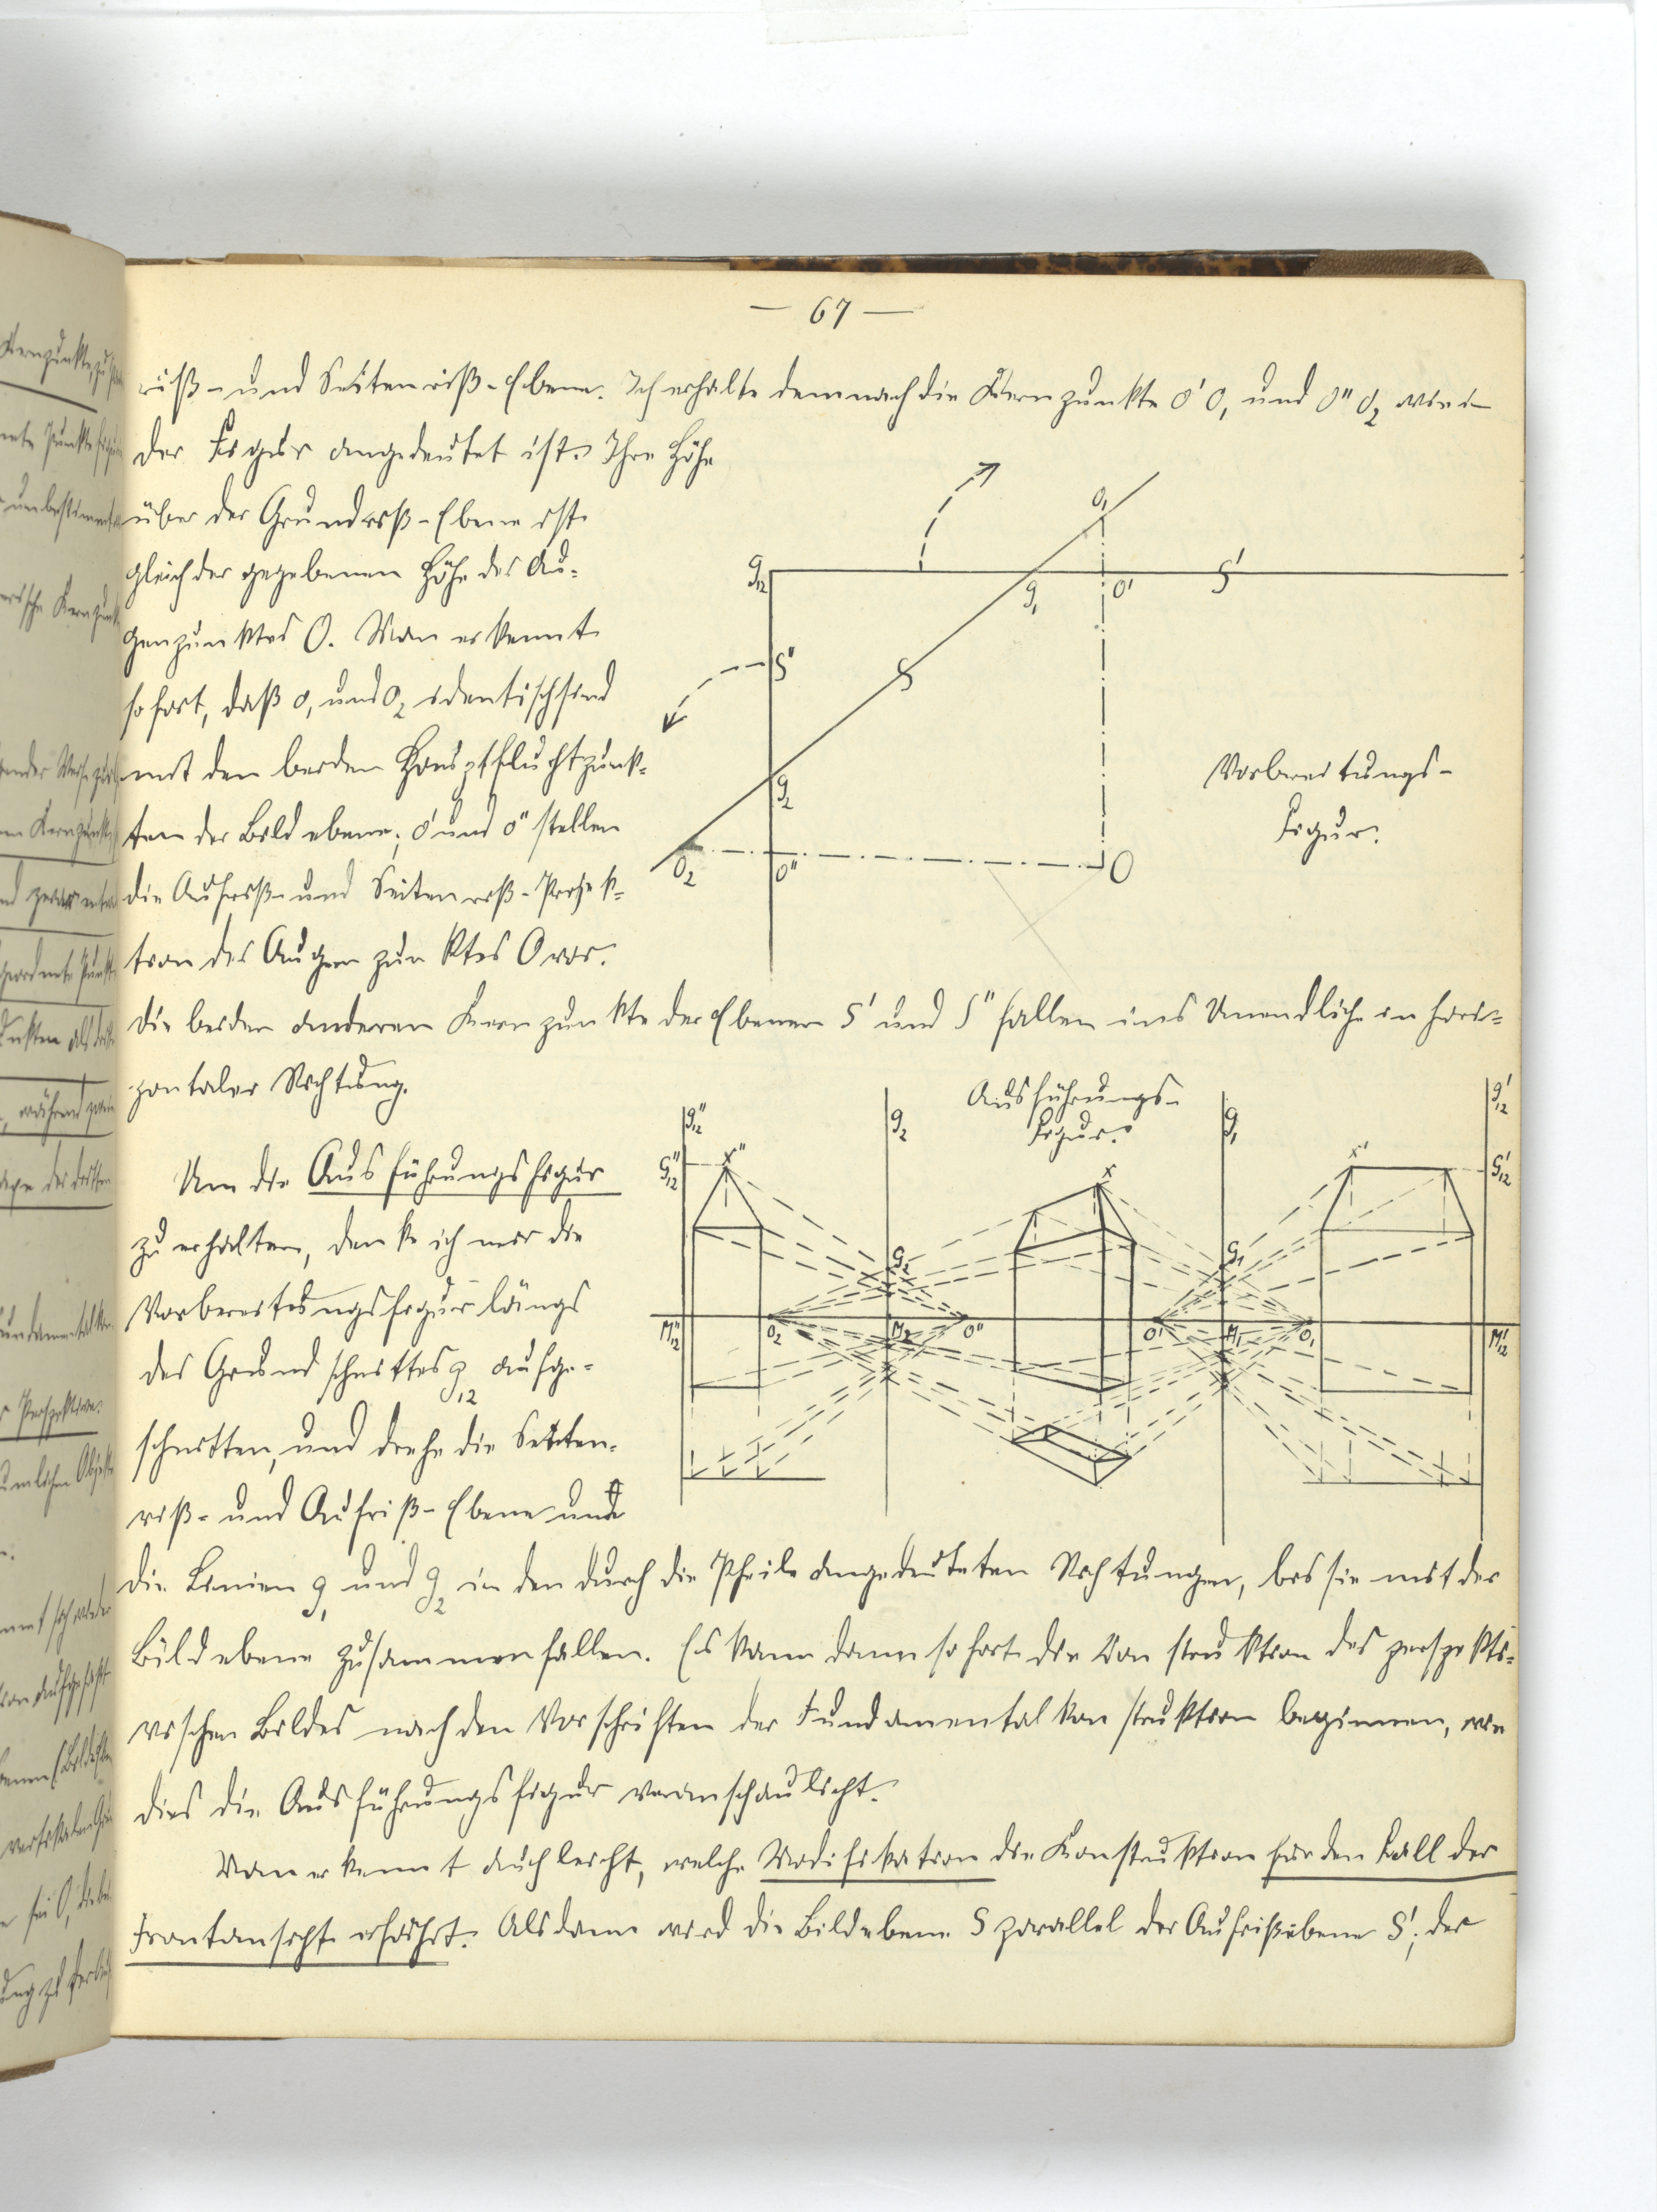 — 67 —
riß- und Seitenriß-Ebene. Ich erhalte demnach die Kernpunkte O' O₁ und O'' O₂ wie in
der Figur angedeutet ist. Ihre Höhe
über der Grundriß-Ebene ist
gleich der gegebenen Höhe des Au-
genpunktes O. Man erkennt
sofort, daß O₁ und O₂ identisch sind
mit den beiden Hauptfluchtpunk-
ten der Bildebene; O' und O'' stellen
die Aufriß- und Seitenriß-Projek-
tion des Augenpunktes O vor.
Die beiden anderen Kernpunkte der Ebenen S' und S'' fallen ins Unendliche in hori-
zontaler Richtung.
g₁₂
O₁
g₁
O'
S'
S''
S
g₂
O₂
O''
O
Vorbereitungs-
Figur.
Um die Ausführungsfigur
zu erhalten, denke ich mir die
Vorbereitungsfigur längs
des Grundschnittes g₁₂ aufge-
schnitten, und drehe die Seiten-
riß- und Aufriß-Ebene um
Ausführungs-
Figur.
g₁₂''
g₂
g₁
g₁₂'
G₁₂''
X''
X
X'
G₁₂'
G₂
G₁
M₁₂''
O₂
M₂
O''
O'
M₁
O₁
M₁₂'
die Linien g₁ und g₂ in den durch die Pfeile angedeuteten Richtungen, bis sie mit der
Bildebene zusammenfallen. Es kann dann sofort die Konstruktion des perspekti-
vischen Bildes nach den Vorschriften der Fundamentalkonstruktion beginnen, wie
dies die Ausführungsfigur veranschaulicht.
Man erkennt auch leicht, welche Modifikation die Konstruktion für den Fall der
Frontansicht erfährt. Alsdann wird die Bildebene S parallel der Aufrißebene S'; der